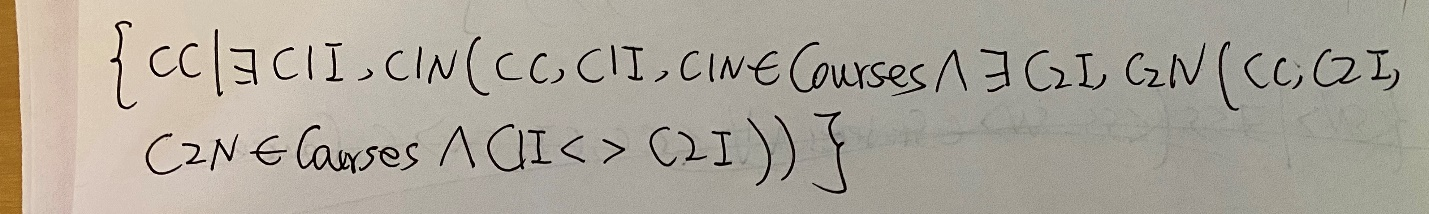 { CC | ∃ C1I, C1N ( CC, C1I, C1N ∈ Courses ∧ ∃ C2I, C2N ( CC, C2I,
C2N ∈ Courses ∧ C1I <> C2I ) ) }